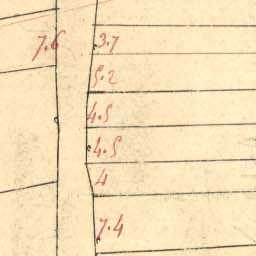 7.6 3.7
5.2
4.5
4.5
4
7.4